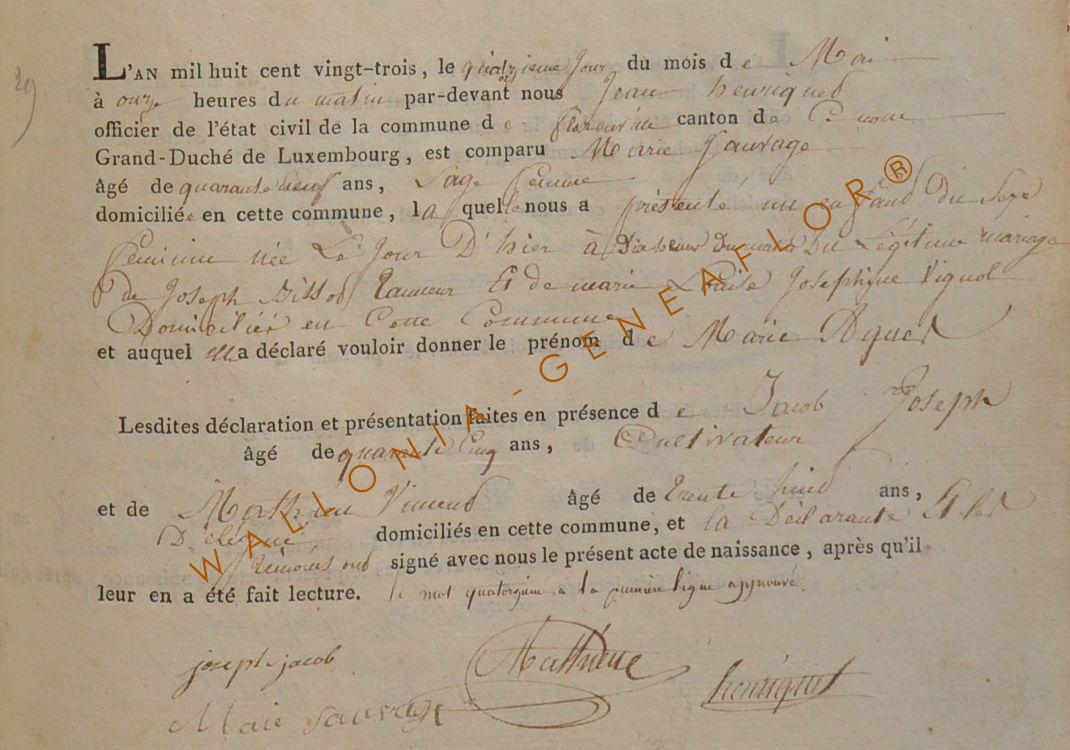 29
L'AN mil huit cent vingt-trois, le quatorzieme jour du mois de Mai
à onze heures du matin par-devant nous Jean henriquet
officier de l'état civil de la commune de florenville canton de
Grand-Duché de Luxembourg, est comparu Marie Sauvage
âgé de quarante neuf ans, Sage femme
domiciliée en cette commune, laquelle nous a présenté un enfant du Sexe
feminin née Le Jour D'hier à dix heures du matin du Légitime mariage
de Joseph Tanneur Et de marie Louise Josephine
Domiciliés en Cette Commune
et auquel a déclaré vouloir donner le prénom de Marie Agnes
Lesdites déclaration et présentation faites en présence de Jacob Joseph
âgé de quarante Cinq ans, Cultivateur
et de Mathieu âgé de Trente ans,
domiciliés en cette commune, et la Déclarante Et les
témoins ont signé avec nous le présent acte de naissance, après qu'il
leur en a été fait lecture. le mot quatorzieme a la premiere ligne approuvé
joseph jacob
Mathieu
henriquet
Marie Sauvage
WALLONIA-GENEAFLOR®